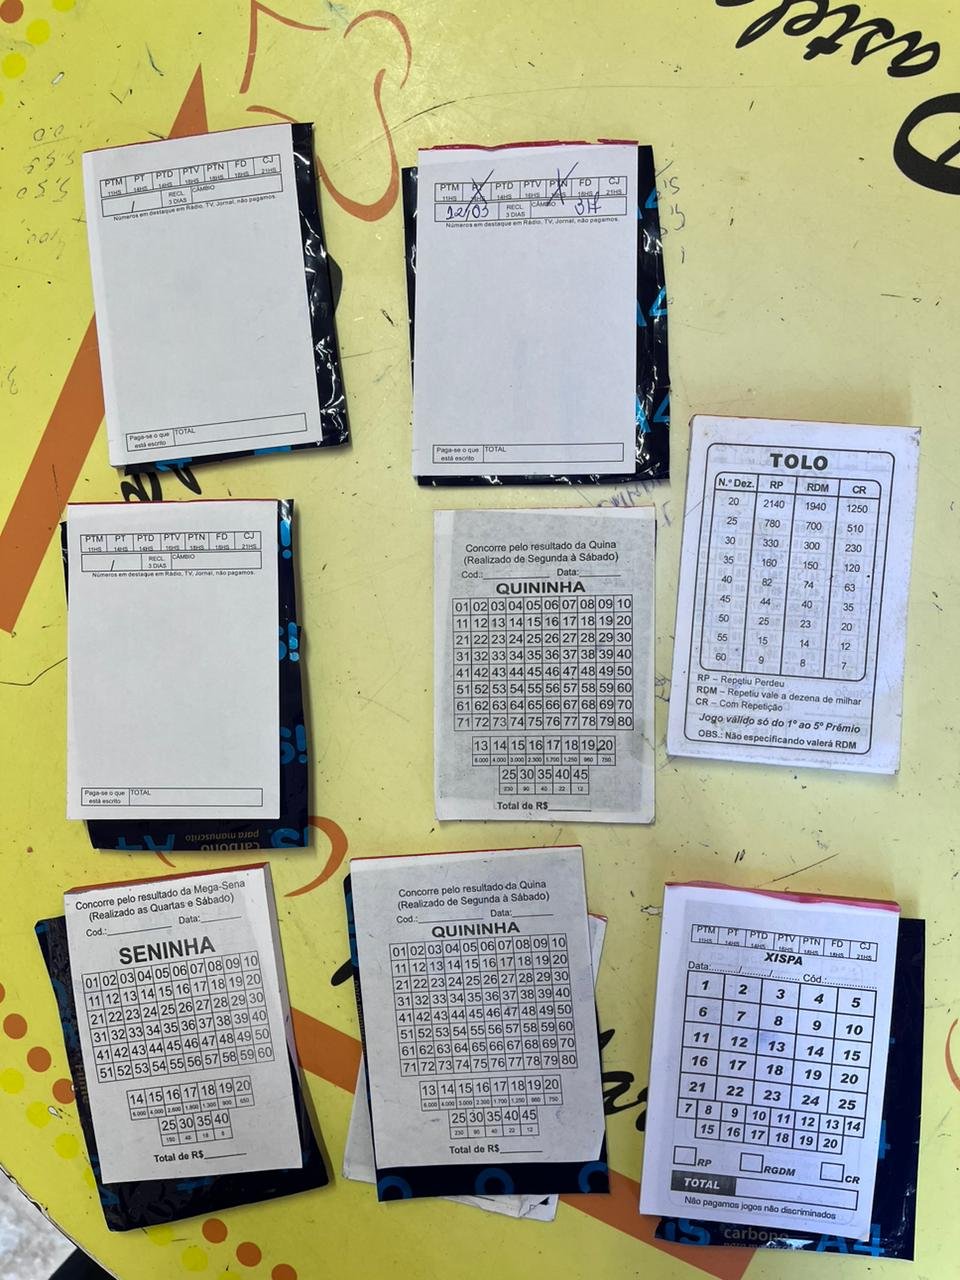 astel
PTM PT PTD PTV PTN FD CJ
11HS 14HS 14HS 16HS 18HS 18HS 21HS
/ RECL. 3 DIAS CÂMBIO
Números em destaque em Rádio, TV, Jornal, não pagamos.
Paga-se o que está escrito TOTAL
PTM PT PTD PTV PTN FD CJ
11HS 14HS 16HS 18HS 21HS
12/03 RECL. 3 DIAS CÂMBIO 317
Números em destaque em Rádio, TV, Jornal, não pagamos.
Paga-se o que está escrito TOTAL
TOLO
N.º Dez. RP RDM CR
20 2140 1940 1250
25 780 700 510
30 330 300 230
35 160 150 120
40 82 74 63
45 44 40 35
50 25 23 20
55 15 14 12
60 9 8 7
RP – Repetiu Perdeu
RDM – Repetiu vale a dezena de milhar
CR – Com Repetição
Jogo válido só do 1º ao 5º Prêmio
OBS.: Não especificando valerá RDM
PTM PT PTD PTV PTN FD CJ
11HS 14HS 14HS 16HS 18HS 18HS 21HS
/ RECL. 3 DIAS CÂMBIO
Números em destaque em Rádio, TV, Jornal, não pagamos.
Paga-se o que está escrito TOTAL
carbono
para manuscrito
A4
Concorre pelo resultado da Quina
(Realizado de Segunda à Sábado)
Cod.: Data:
QUININHA
01 02 03 04 05 06 07 08 09 10
11 12 13 14 15 16 17 18 19 20
21 22 23 24 25 26 27 28 29 30
31 32 33 34 35 36 37 38 39 40
41 42 43 44 45 46 47 48 49 50
51 52 53 54 55 56 57 58 59 60
61 62 63 64 65 66 67 68 69 70
71 72 73 74 75 76 77 78 79 80
13 14 15 16 17 18 19 20
6.000 4.000 3.000 2.300 1.700 1.250 960 750
25 30 35 40 45
230 90 40 22 12
Total de R$
Concorre pelo resultado da Mega-Sena
(Realizado as Quartas e Sábado)
Cod.: Data:
SENINHA
01 02 03 04 05 06 07 08 09 10
11 12 13 14 15 16 17 18 19 20
21 22 23 24 25 26 27 28 29 30
31 32 33 34 35 36 37 38 39 40
41 42 43 44 45 46 47 48 49 50
51 52 53 54 55 56 57 58 59 60
14 15 16 17 18 19 20
6.000 4.000 2.600 1.800 1.300 900 650
25 30 35 40
150 40 18 8
Total de R$
Concorre pelo resultado da Quina
(Realizado de Segunda à Sábado)
Cod.: Data:
QUININHA
01 02 03 04 05 06 07 08 09 10
11 12 13 14 15 16 17 18 19 20
21 22 23 24 25 26 27 28 29 30
31 32 33 34 35 36 37 38 39 40
41 42 43 44 45 46 47 48 49 50
51 52 53 54 55 56 57 58 59 60
61 62 63 64 65 66 67 68 69 70
71 72 73 74 75 76 77 78 79 80
13 14 15 16 17 18 19 20
6.000 4.000 3.000 2.300 1.700 1.250 960 750
25 30 35 40 45
230 90 40 22 12
Total de R$
PTM PT PTD PTV PTN FD CJ
11HS 14HS 14HS 16HS 18HS 18HS 21HS
XISPA
Data: / / Cód.
1 2 3 4 5
6 7 8 9 10
11 12 13 14 15
16 17 18 19 20
21 22 23 24 25
7 8 9 10 11 12 13 14
15 16 17 18 19 20
RP RGDM CR
TOTAL
Não pagamos jogos não discriminados
carbono
A4